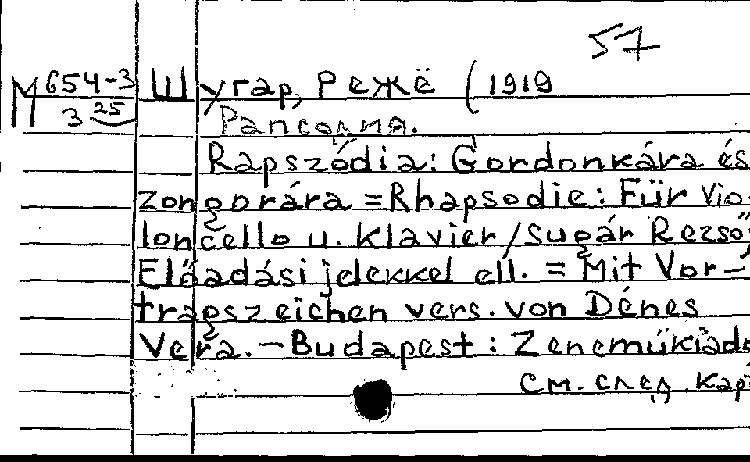 57
М 654-3 Шугар, Режё (1919
3 25
Рапсодия.
Rapszódia: Gordonkára és
zongorára = Rhapsodie: Für Vio-
loncello u. Klavier/Sugár Rezső;
Előadási jelekkel ell. = Mit Vor-
tragszeichen vers. von Dénes
Vera. – Budapest: Zeneműkiadó
См. след. кар